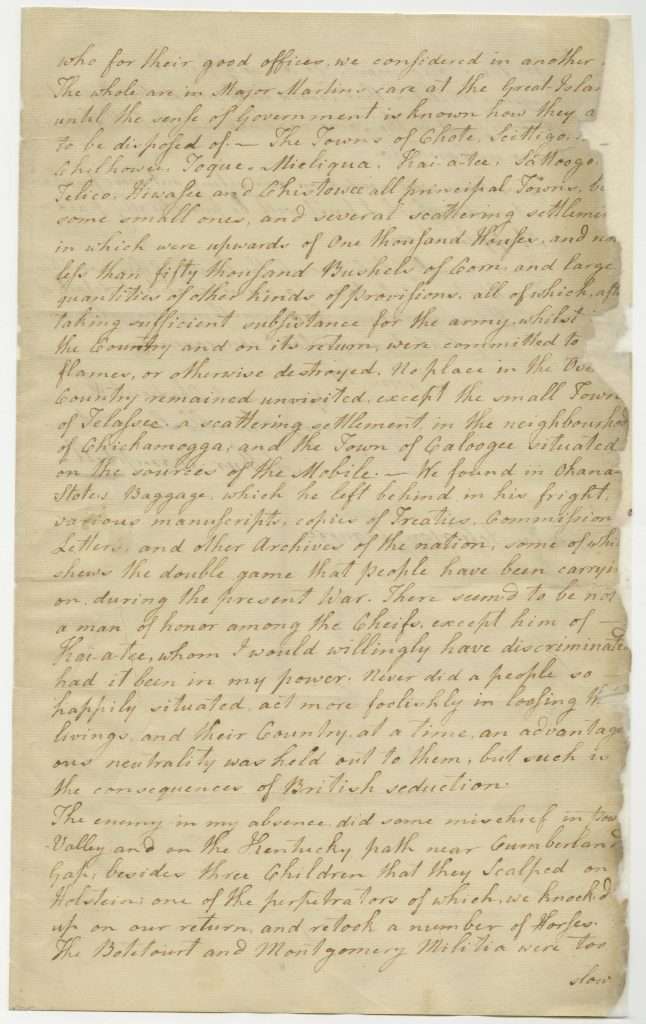 who for their good offices, we considered in another
The whole are in Major Martins care at the Great Islan
until the sense of Government is known how they a
to be disposed of. — The Towns of Chote, Scittigo,
Chelhowee, Toque, Micliqua, Kai-a-tee, Sattoogo
Telico, Hiwasee and Chistowee all principal Towns, be
some small ones, and several scattering settlemen
in which were upwards of One thousand Houses, and no
less than fifty thousand Bushels of Corn, and large
quantities of other kinds of provisions, all of which, aft
taking sufficient subsistance for the army, whilst
the Country and on its return, were committed to
flames, or otherwise destroyed. No place in the Ove
Country remained unvisited, except the small Town
of Telassee, a scattering settlement in the neighbourhood
of Chichamogga, and the Town of Caloogee situated
on the sources of the Mobile. — We found in Okana-
Stote,s Baggage, which he left behind in his fright,
various manuscripts, copies of Treaties, Commission
Letters, and other Archives of the nation, some of whi
shews the double game that people have been carryin
on, during the present War. There seem'd to be not
a man of honor among the Cheifs, except him of —
Kai-a-tee, whom I would willingly have discriminated
had it been in my power. Never did a people so —
happily situated, act more foolishly in loosing th
livings, and their Country, at a time, an advantage
ous neutrality was held out to them, but such is
the consequences of British seduction.
The enemy in my absence did some mischief in
Valley and on the Kentucky path near Cumberland
Gap; besides three Children that they Scalped on
Holstein; one of the perpetrators of which, we knock,d
up on our return, and retook a number of Horses.
The Botetourt and Montgomery Militia were too
slow